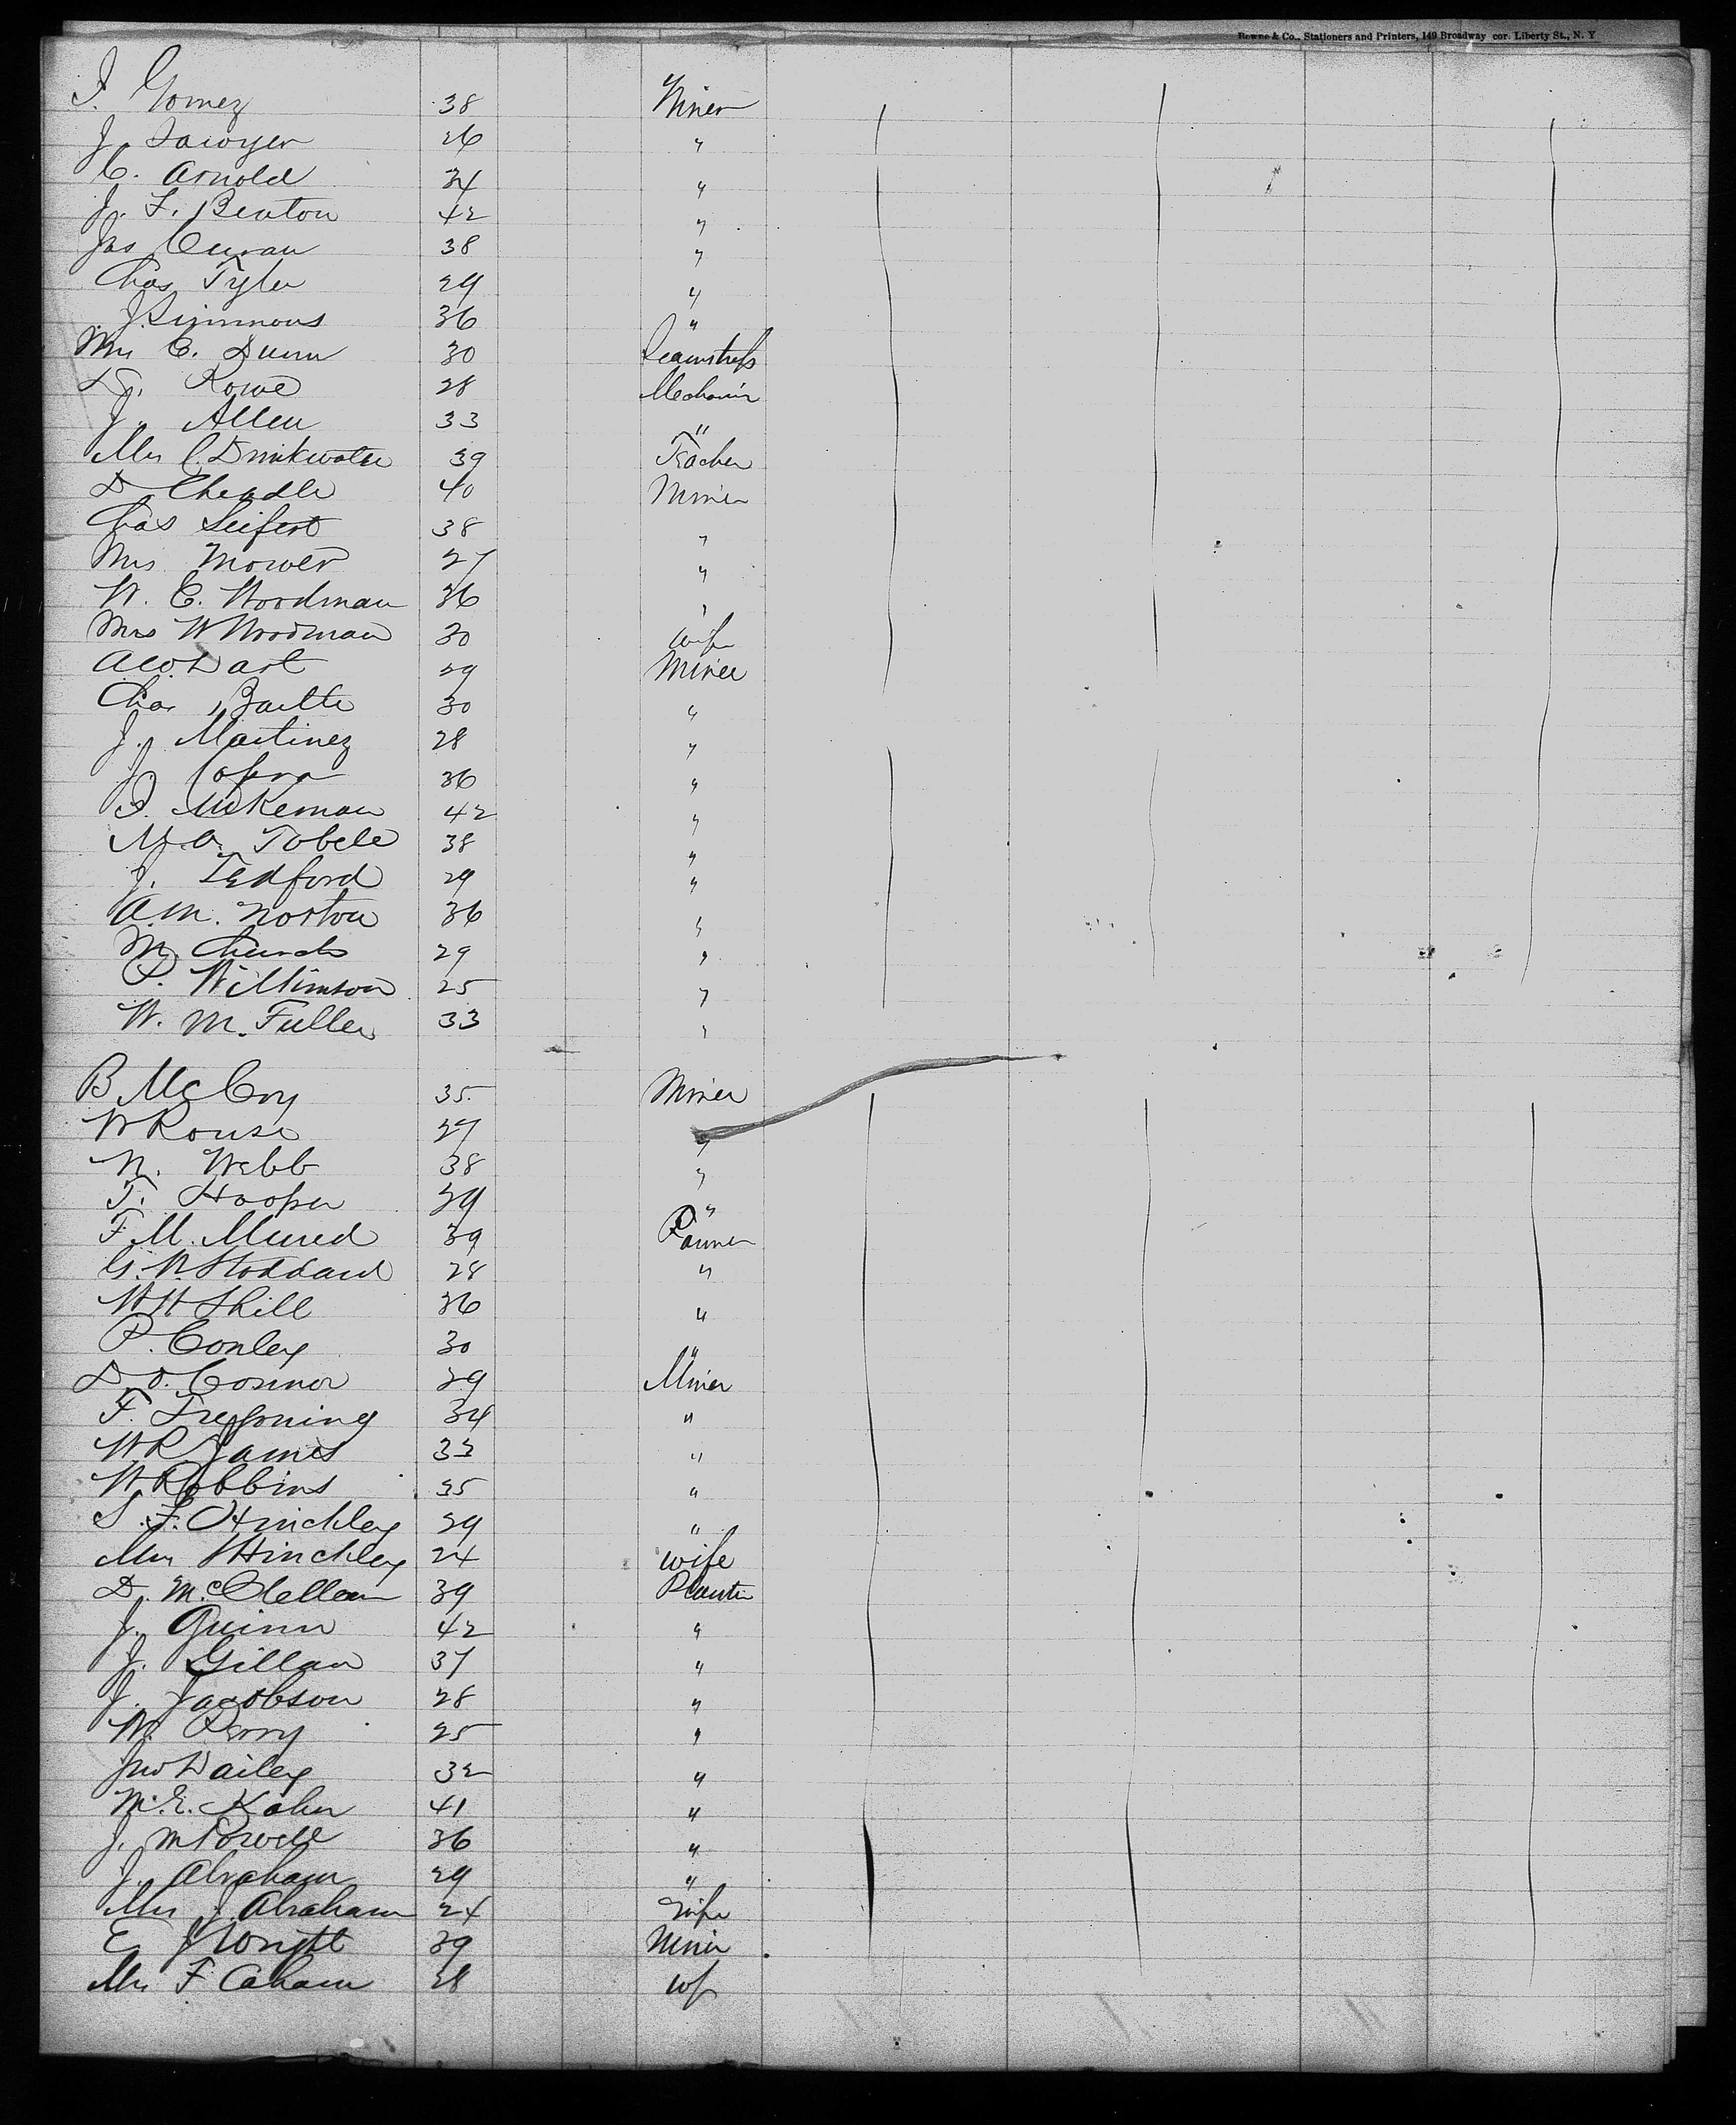 Bowne & Co., Stationers and Printers, 149 Broadway cor. Liberty St., N. Y
I. Gomez 38 Miner
J. Sawyer 26 "
C. Arnold 34 "
J. F. Benton 42 "
Jas Curran 38 "
Chas Tyler 29 "
J. Simmons 36 "
Mrs C. Dunn 30 Seamstress
Rowe 28 Mechanic
J. Allen 33 "
Mrs C. Drinkwater 39 Teacher
D. Cheadle 40 Miner
Chas Seifert 38 "
Mrs Mower 27 "
W. C. Woodman 36 "
Mrs W Woodman 30 wife
Dart 29 Miner
Chas 30 "
J. Martinez 28 "
J. 36 "
42 "
M. A. Tobele 38 "
J. Tedford 29 "
A. M. Norton 36 "
M. Church 29 "
P. Wilkinson 25 "
W. M. Fuller 33 "
B McCoy 35 Miner
W Rouse 27 "
N. Webb 38 "
T. Hooper 29 "
F. M. 39 Farmer
G. N. Stoddard 28 "
W H Shill 36 "
P. Conley 30 "
D. O. Connor 29 Miner
F. Tregoning 34 "
W R James 33 "
W Robbins 35 "
S. F. Hinchley 29 "
Mrs Hinchley 24 wife
D. McClellan 39 Planter
J. Quinn 42 "
J. Gillan 37 "
J. Jacobson 28 "
W. Perry 25 "
Jno Dailey 32 "
M. E. Kahn 41 "
J. M Powell 36 "
J. Abraham 29 "
Mrs J. Abraham 24 Wife
E J Wright 39 Miner
Mrs F Caham 28 wf